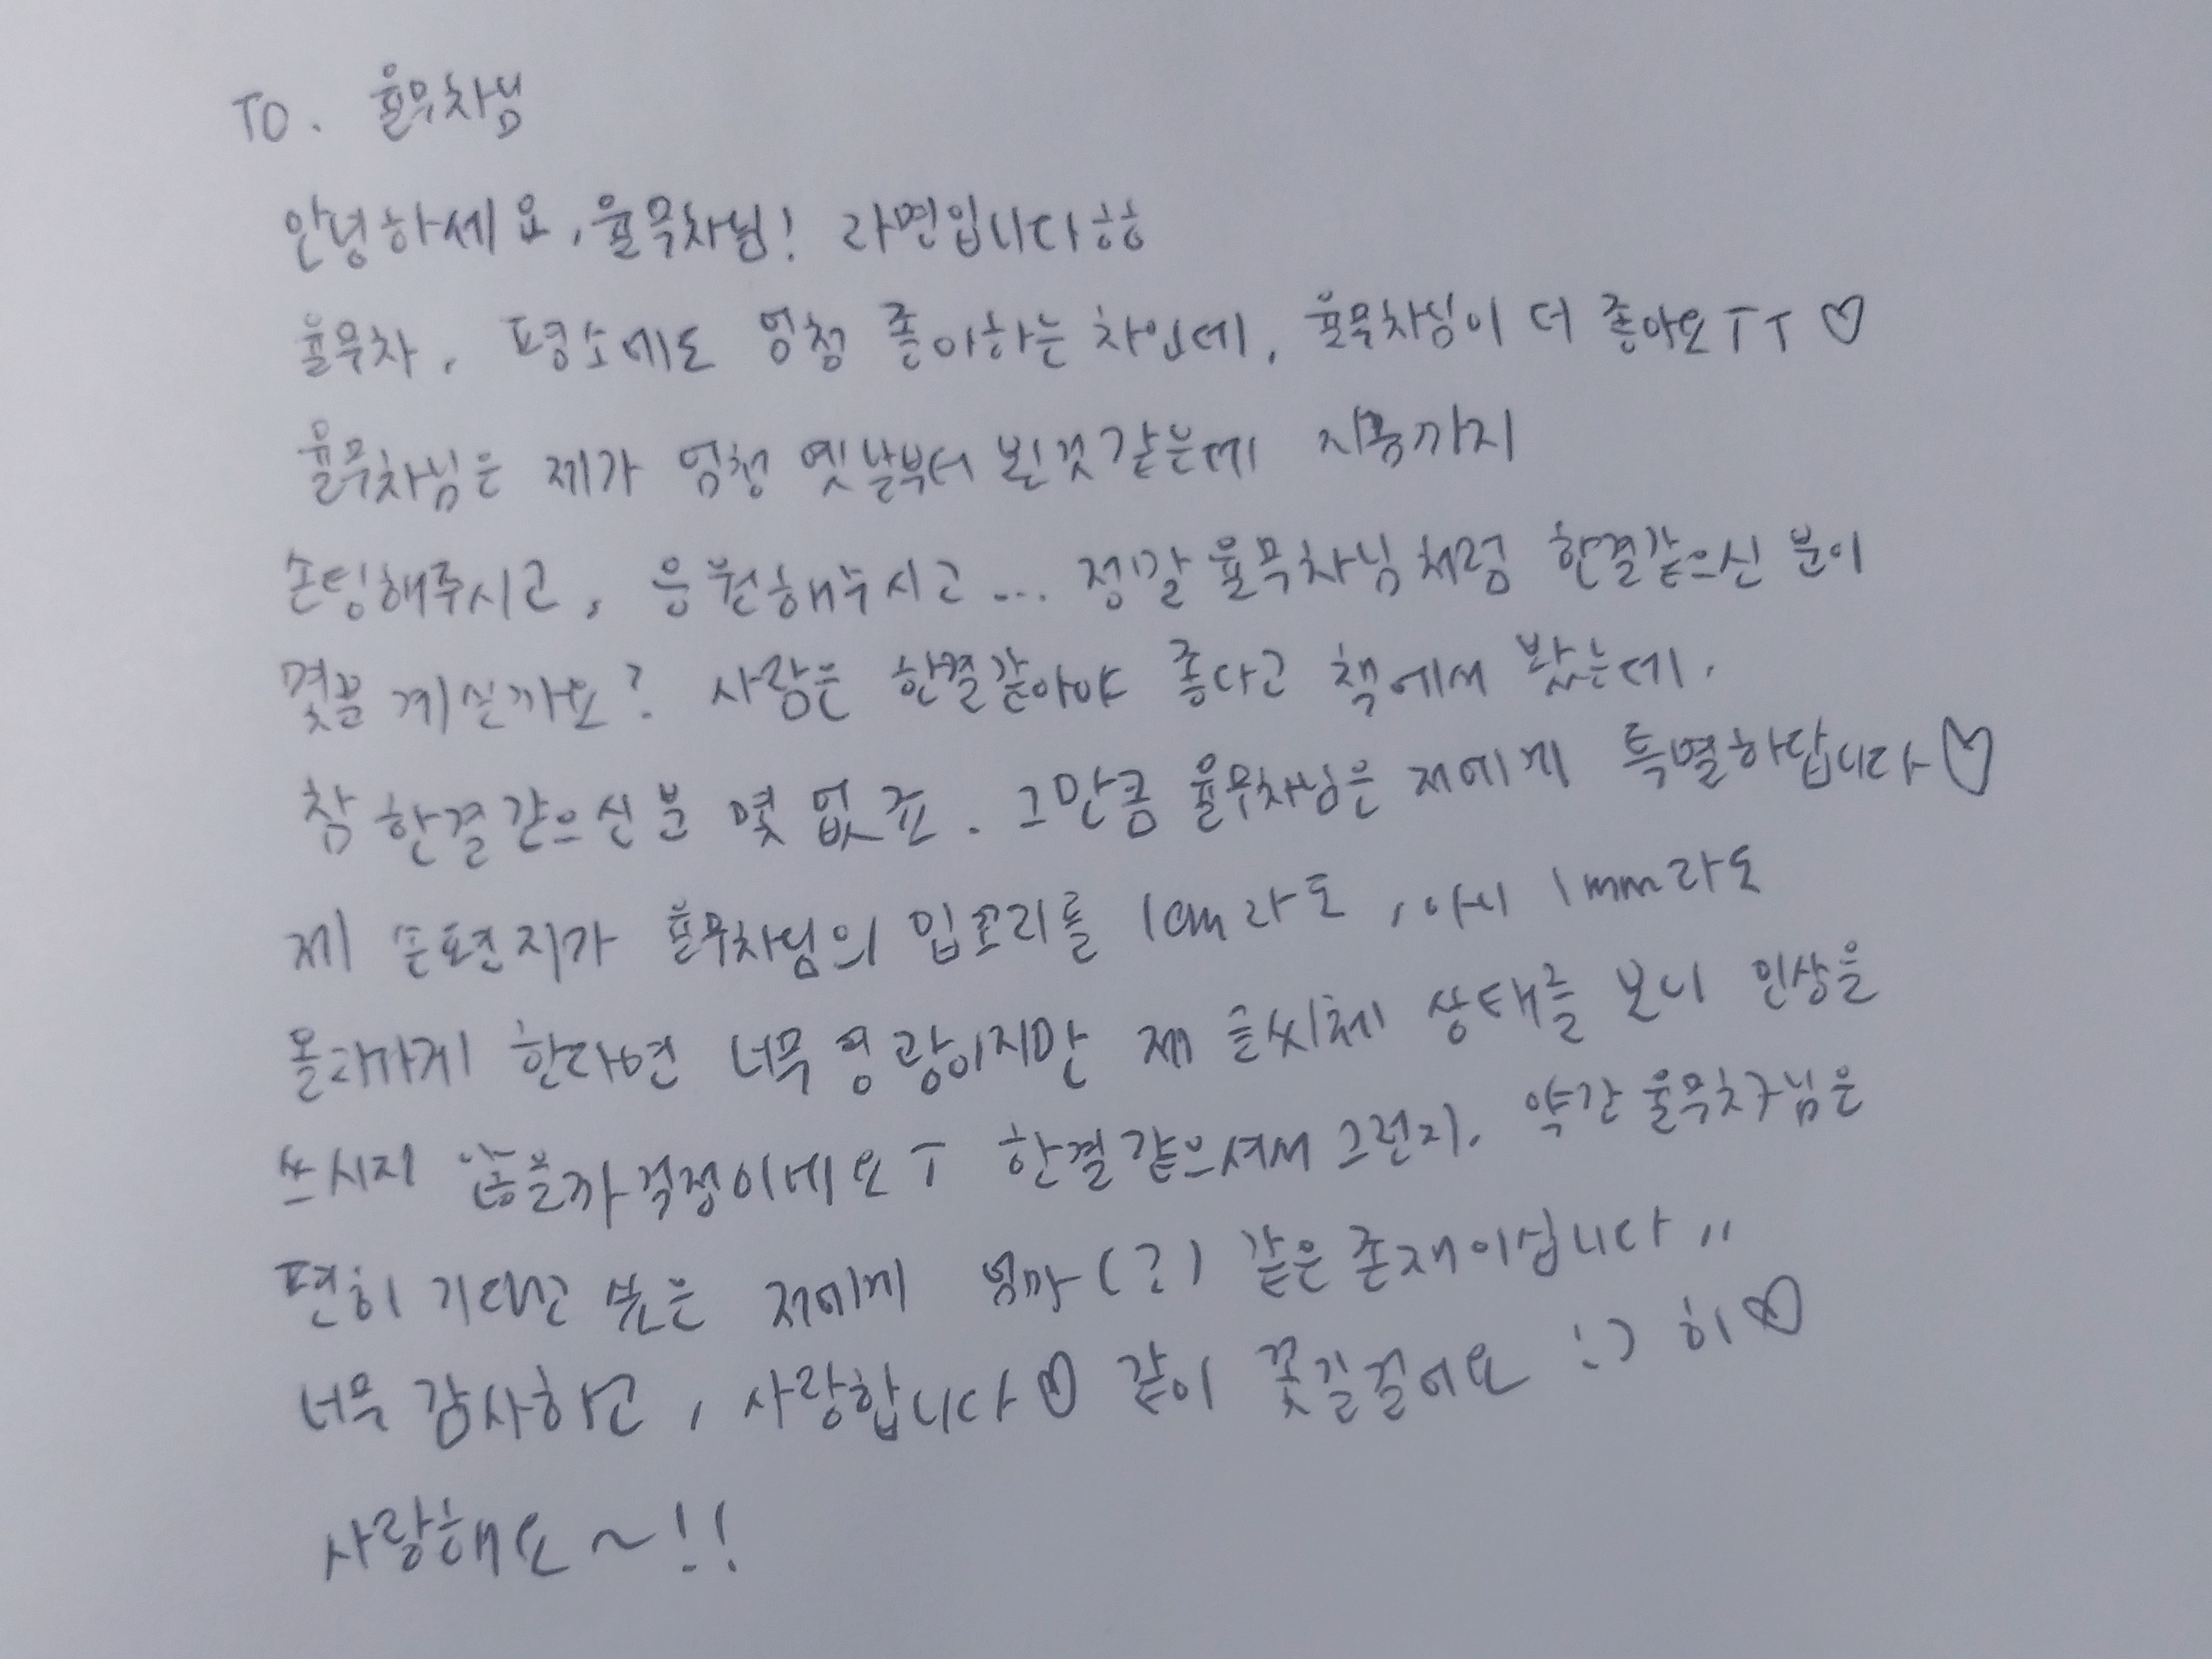 TO. 율무차님
안녕하세요, 율무차님! 라면입니다ㅎㅎ
율무차, 평소에도 엄청 좋아하는 차인데, 율무차님이 더 좋아요ㅜㅜ♡
율무차님은 제가 엄청 옛날부터 뵌것같은데 지금까지
손팅해주시고, 응원해주시고... 정말 율무차님처럼 한결같으신 분이
몇분 계실까요? 사람은 한결같아야 좋다고 책에서 봤는데,
참 한결같으신 분 몇 없죠. 그만큼 율무차님은 저에게 특별하답니다♡
제 손편지가 율무차님의 입꼬리를 1cm라도, 아니 1mm라도
올라가게 한다면 너무 영광이지만 제 글씨체 상태를 보니 인상을
쓰시지 않을까 걱정이네요ㅜ 한결같으셔서 그런지, 약간 율무차님은
편히 기대고 싶은 저에게 엄마(?) 같은 존재이십니다,,
너무 감사하고, 사랑합니다♡ 같이 꽃길걸어요 :) 히♡
사랑해요~!!